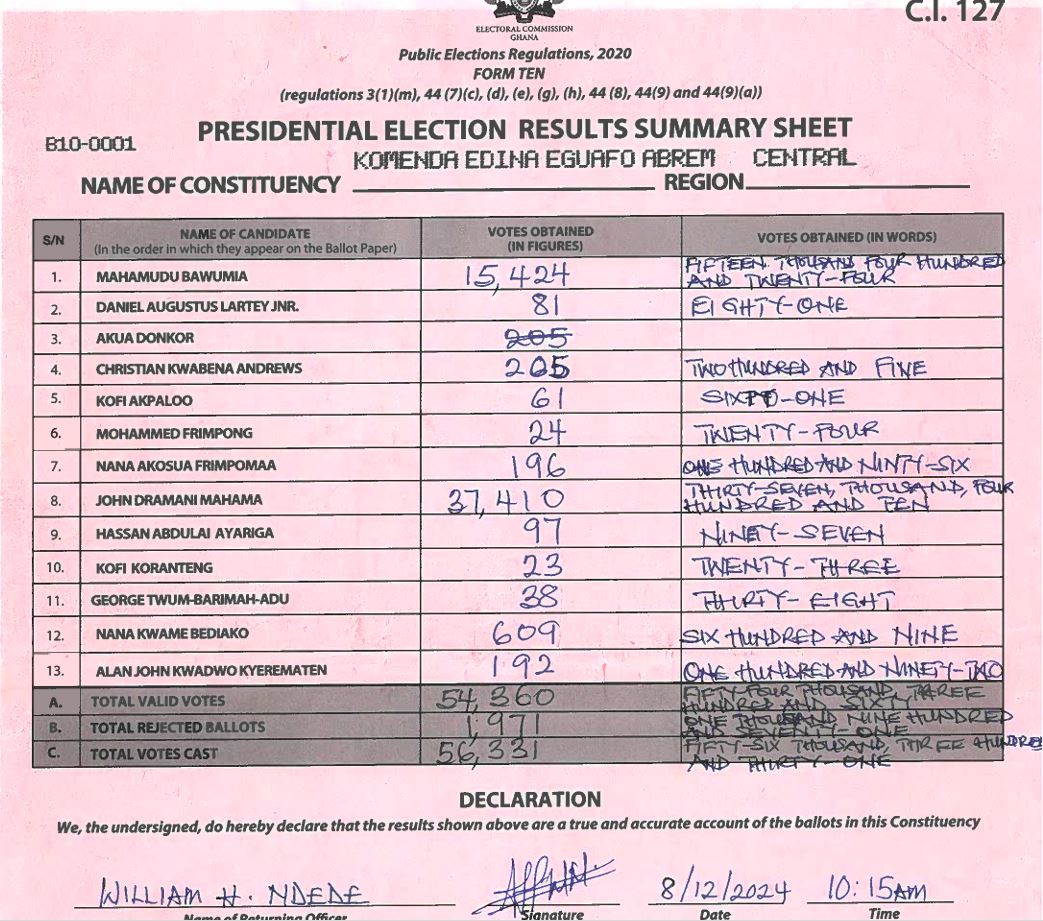 C.I. 127
ELECTORAL COMMISSION
GHANA
Public Elections Regulations, 2020
FORM TEN
(regulations 3(1)(m), 44 (7)(c), (d), (e), (g), (h), 44 (8), 44(9) and 44(9)(a))
PRESIDENTIAL ELECTION RESULTS SUMMARY SHEET
B10-0001
KOMENDA EDINA EGUAFO ABREM CENTRAL
NAME OF CONSTITUENCY REGION
S/N NAME OF CANDIDATE (In the order in which they appear on the Ballot Paper) VOTES OBTAINED (IN FIGURES) VOTES OBTAINED (IN WORDS)
1. MAHAMUDU BAWUMIA 15,424 FIFTEEN THOUSAND FOUR HUNDRED AND TWENTY-FOUR
2. DANIEL AUGUSTUS LARTEY JNR. 81 EIGHTY-ONE
3. AKUA DONKOR 205
4. CHRISTIAN KWABENA ANDREWS 205 TWO HUNDRED AND FIVE
5. KOFI AKPALOO 61 SIXTY-ONE
6. MOHAMMED FRIMPONG 24 TWENTY-FOUR
7. NANA AKOSUA FRIMPOMAA 196 ONE HUNDRED AND NINTY-SIX
8. JOHN DRAMANI MAHAMA 37,410 THIRTY-SEVEN, THOUSAND, FOUR HUNDRED AND TEN
9. HASSAN ABDULAI AYARIGA 97 NINETY-SEVEN
10. KOFI KORANTENG 23 TWENTY-THREE
11. GEORGE TWUM-BARIMAH-ADU 38 THIRTY-EIGHT
12. NANA KWAME BEDIAKO 609 SIX HUNDRED AND NINE
13. ALAN JOHN KWADWO KYEREMATEN 192 ONE HUNDRED AND NINETY-TWO
A. TOTAL VALID VOTES 54,360 FIFTY-FOUR THOUSAND, THREE HUNDRED AND SIXTY
B. TOTAL REJECTED BALLOTS 1,971 ONE THOUSAND NINE HUNDRED AND SEVENTY-ONE
C. TOTAL VOTES CAST 56,331 FIFTY-SIX THOUSAND, THREE HUNDRED AND THIRTY-ONE
DECLARATION
We, the undersigned, do hereby declare that the results shown above are a true and accurate account of the ballots in this Constituency
WILLIAM H. NDEDE 8/12/2024 10:15AM
Name of Returning Officer Signature Date Time